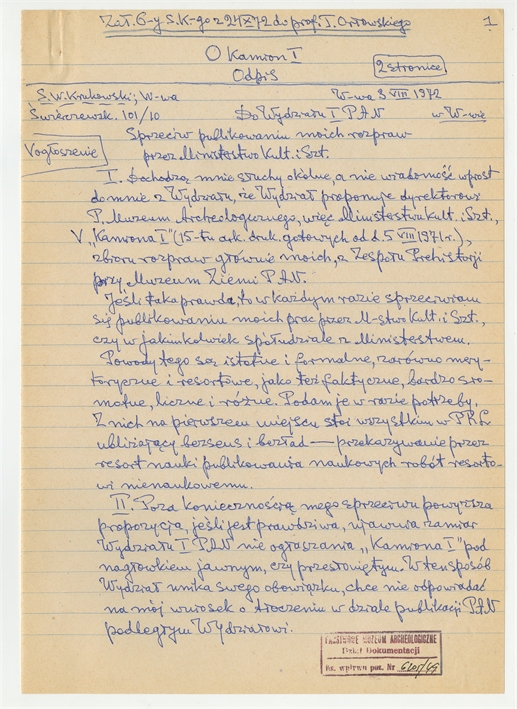 Zał. 6-y S. K-go z 24 X 72 do prof. T. Orłowskiego
1
O Kamion I
Odpis
2 stronice
S. W. Krukowski; W-wa
W-wa 3 VIII 1972
Świerczewsk. 101/10
Do Wydziału I PAN w W-wie
Sprzeciw publikowaniu moich rozpraw
przez Ministestwo Kult. i Szt.
V ogłoszenie
I. Dochodzą mnie słuchy okolne, a nie wiadomość wprost
do mnie z Wydziału, że Wydział proponuje dyrektorowi
P. Muzeum Archeologicznego, więc Ministestwu Kult. i Szt.,
V „Kamiona I" (15-tu ark. druk. gotowych od d. 5 VIII 1971 r.),
zbioru rozpraw głównie moich, z Zespołu Prehistorji
przy Muzeum Ziemi PAN.
Jeśli taka prawda, to w każdym razie sprzeciwiam
się publikowaniu moich prac przez M-stwo Kult. i Szt.,
czy w jakimkolwiek spółudziale z Ministestwem.
Powody tego są istotne i formalne, zarówno mery-
toryczne i resortowe, jako też faktyczne, bardzo sro-
motne, liczne i różne. Podam je w razie potrzeby.
Z nich na pierwszem miejscu stoi wszystkim w PRL
ubliżający bezsens i bezład — przekazywanie przez
resort nauki publikowania naukowych robót resorto-
wi nienaukowemu.
II. Poza koniecznością mego sprzeciwu powyższa
propozycja, jeśli jest prawdziwa, ujawnia zamiar
Wydziału I PAN nie ogłaszania „Kamiona I" pod
nagłowkiem jawnym, czy przesłoniętym. W ten sposób
Wydział unika swego obowiązku, chce nie odpowiadać
na mój wniosek o tłoczeniu w dziale publikacji PAN
podległym Wydziałowi.
PAŃSTWOWE MUZEUM ARCHEOLOGICZNE
Dział Dokumentacji
Nr. wpływu poz. Nr